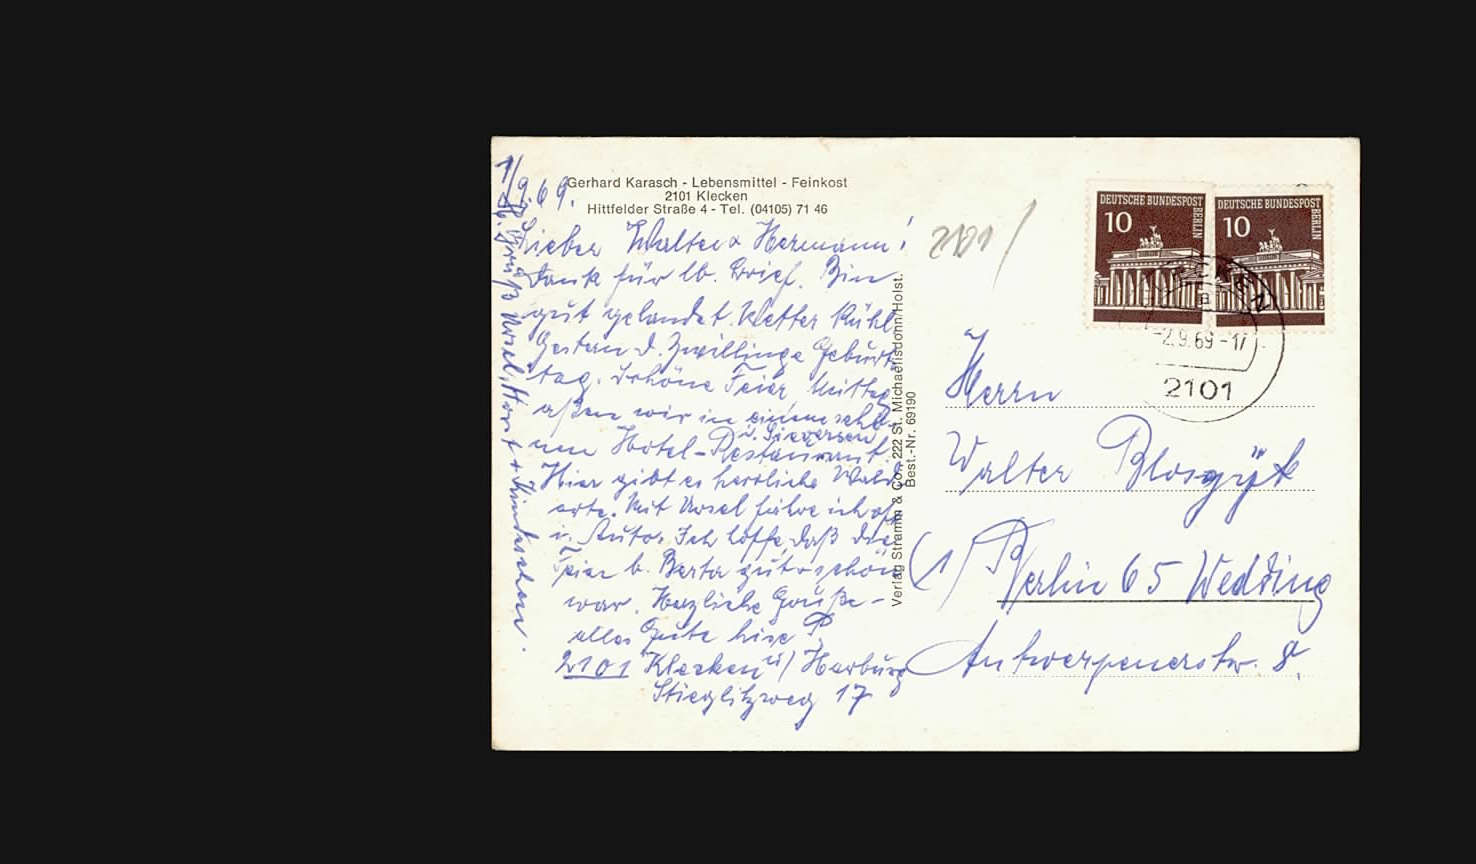 1/9.69.
Gerhard Karasch - Lebensmittel - Feinkost
2101 Klecken
Hittfelder Straße 4 - Tel. (04105) 71 46
Lieber Walter & Hermann!
Dank für lb. Brief. Bin
gut gelandet. Wetter kühl
Gestern d. Zwillinge Geburts
tag. Schöne Feier, Mittag
aßen wir in einem schö-
nen Hotel-Restaurant.
Hier gibt es herrliche Wald
orte. Mit Ursel fahre ich oft
i. Auto. Ich hoffe, daß die
Feier b. Berta gut + schön
war. Herzliche Grüße -
alles Gute
2101 Klecken / Harburg
Stieglitzweg 17
Gruß Ursel, Horst + Kinderchen.
Verlag Stramm & Co., 222 St. Michaelisdonn/Holst.
Best.-Nr. 69190
2101
DEUTSCHE BUNDESPOST
BERLIN
10
DEUTSCHE BUNDESPOST
BERLIN
10
KLECKEN
-2.9.69-17
2101
Herrn
Walter
(1) Berlin 65 Wedding
Antwerpenerstr. 8.